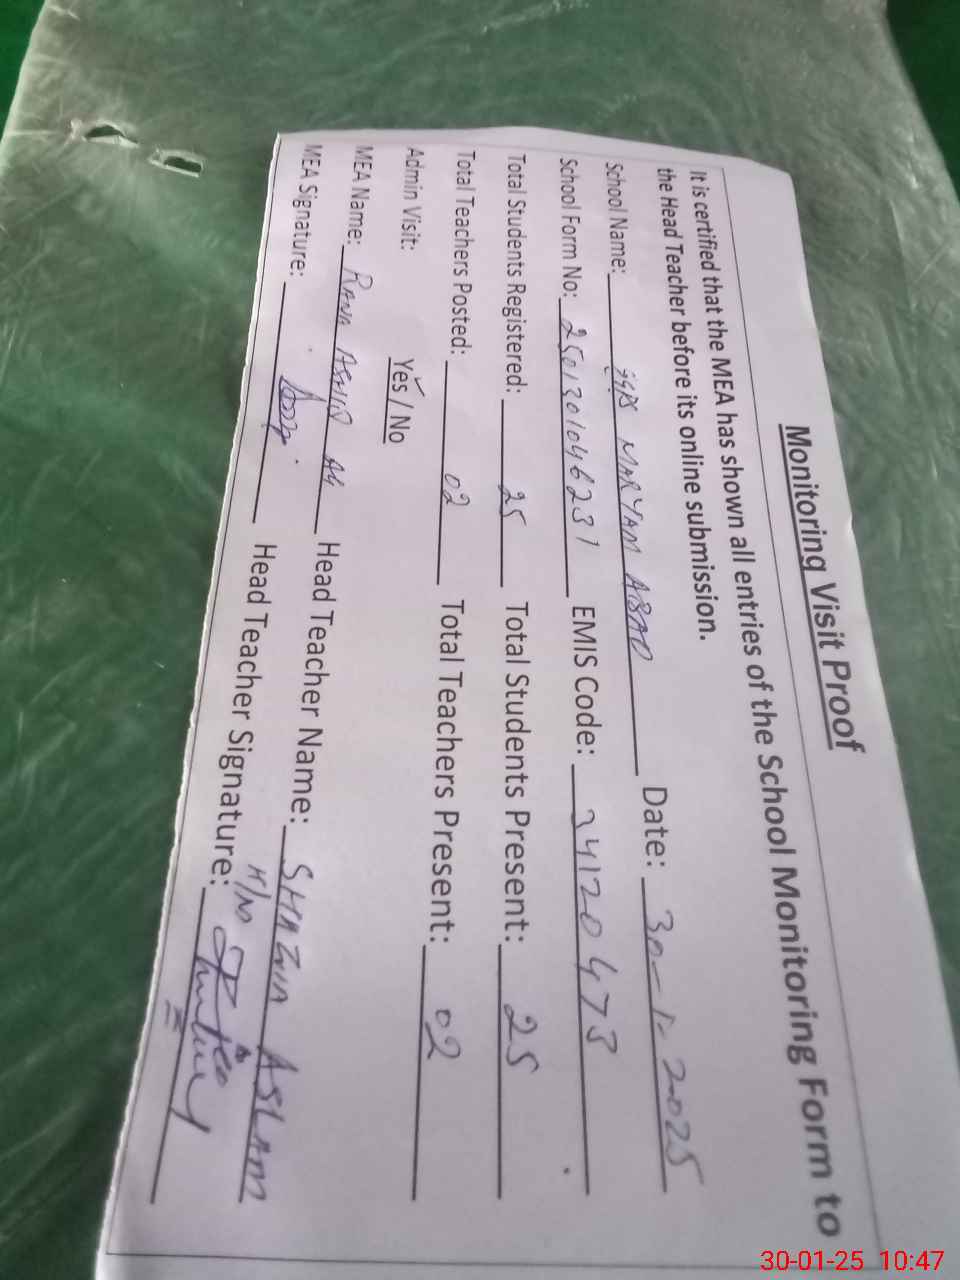 Monitoring Visit Proof
It is certified that the MEA has shown all entries of the School Monitoring Form to
the Head Teacher before its online submission.
School Name: ggps MARYAM ABAD Date: 30-1-2025
School Form No: 2501301046231 EMIS Code: 34120473
Total Students Registered: 25 Total Students Present: 25
Total Teachers Posted: 02 Total Teachers Present: 02
Admin Visit: Yes / No
MEA Name: RANA ASHIQ Ali Head Teacher Name: SHAZIA ASLAM
MEA Signature: Head Teacher Signature:
30-01-25 10:47